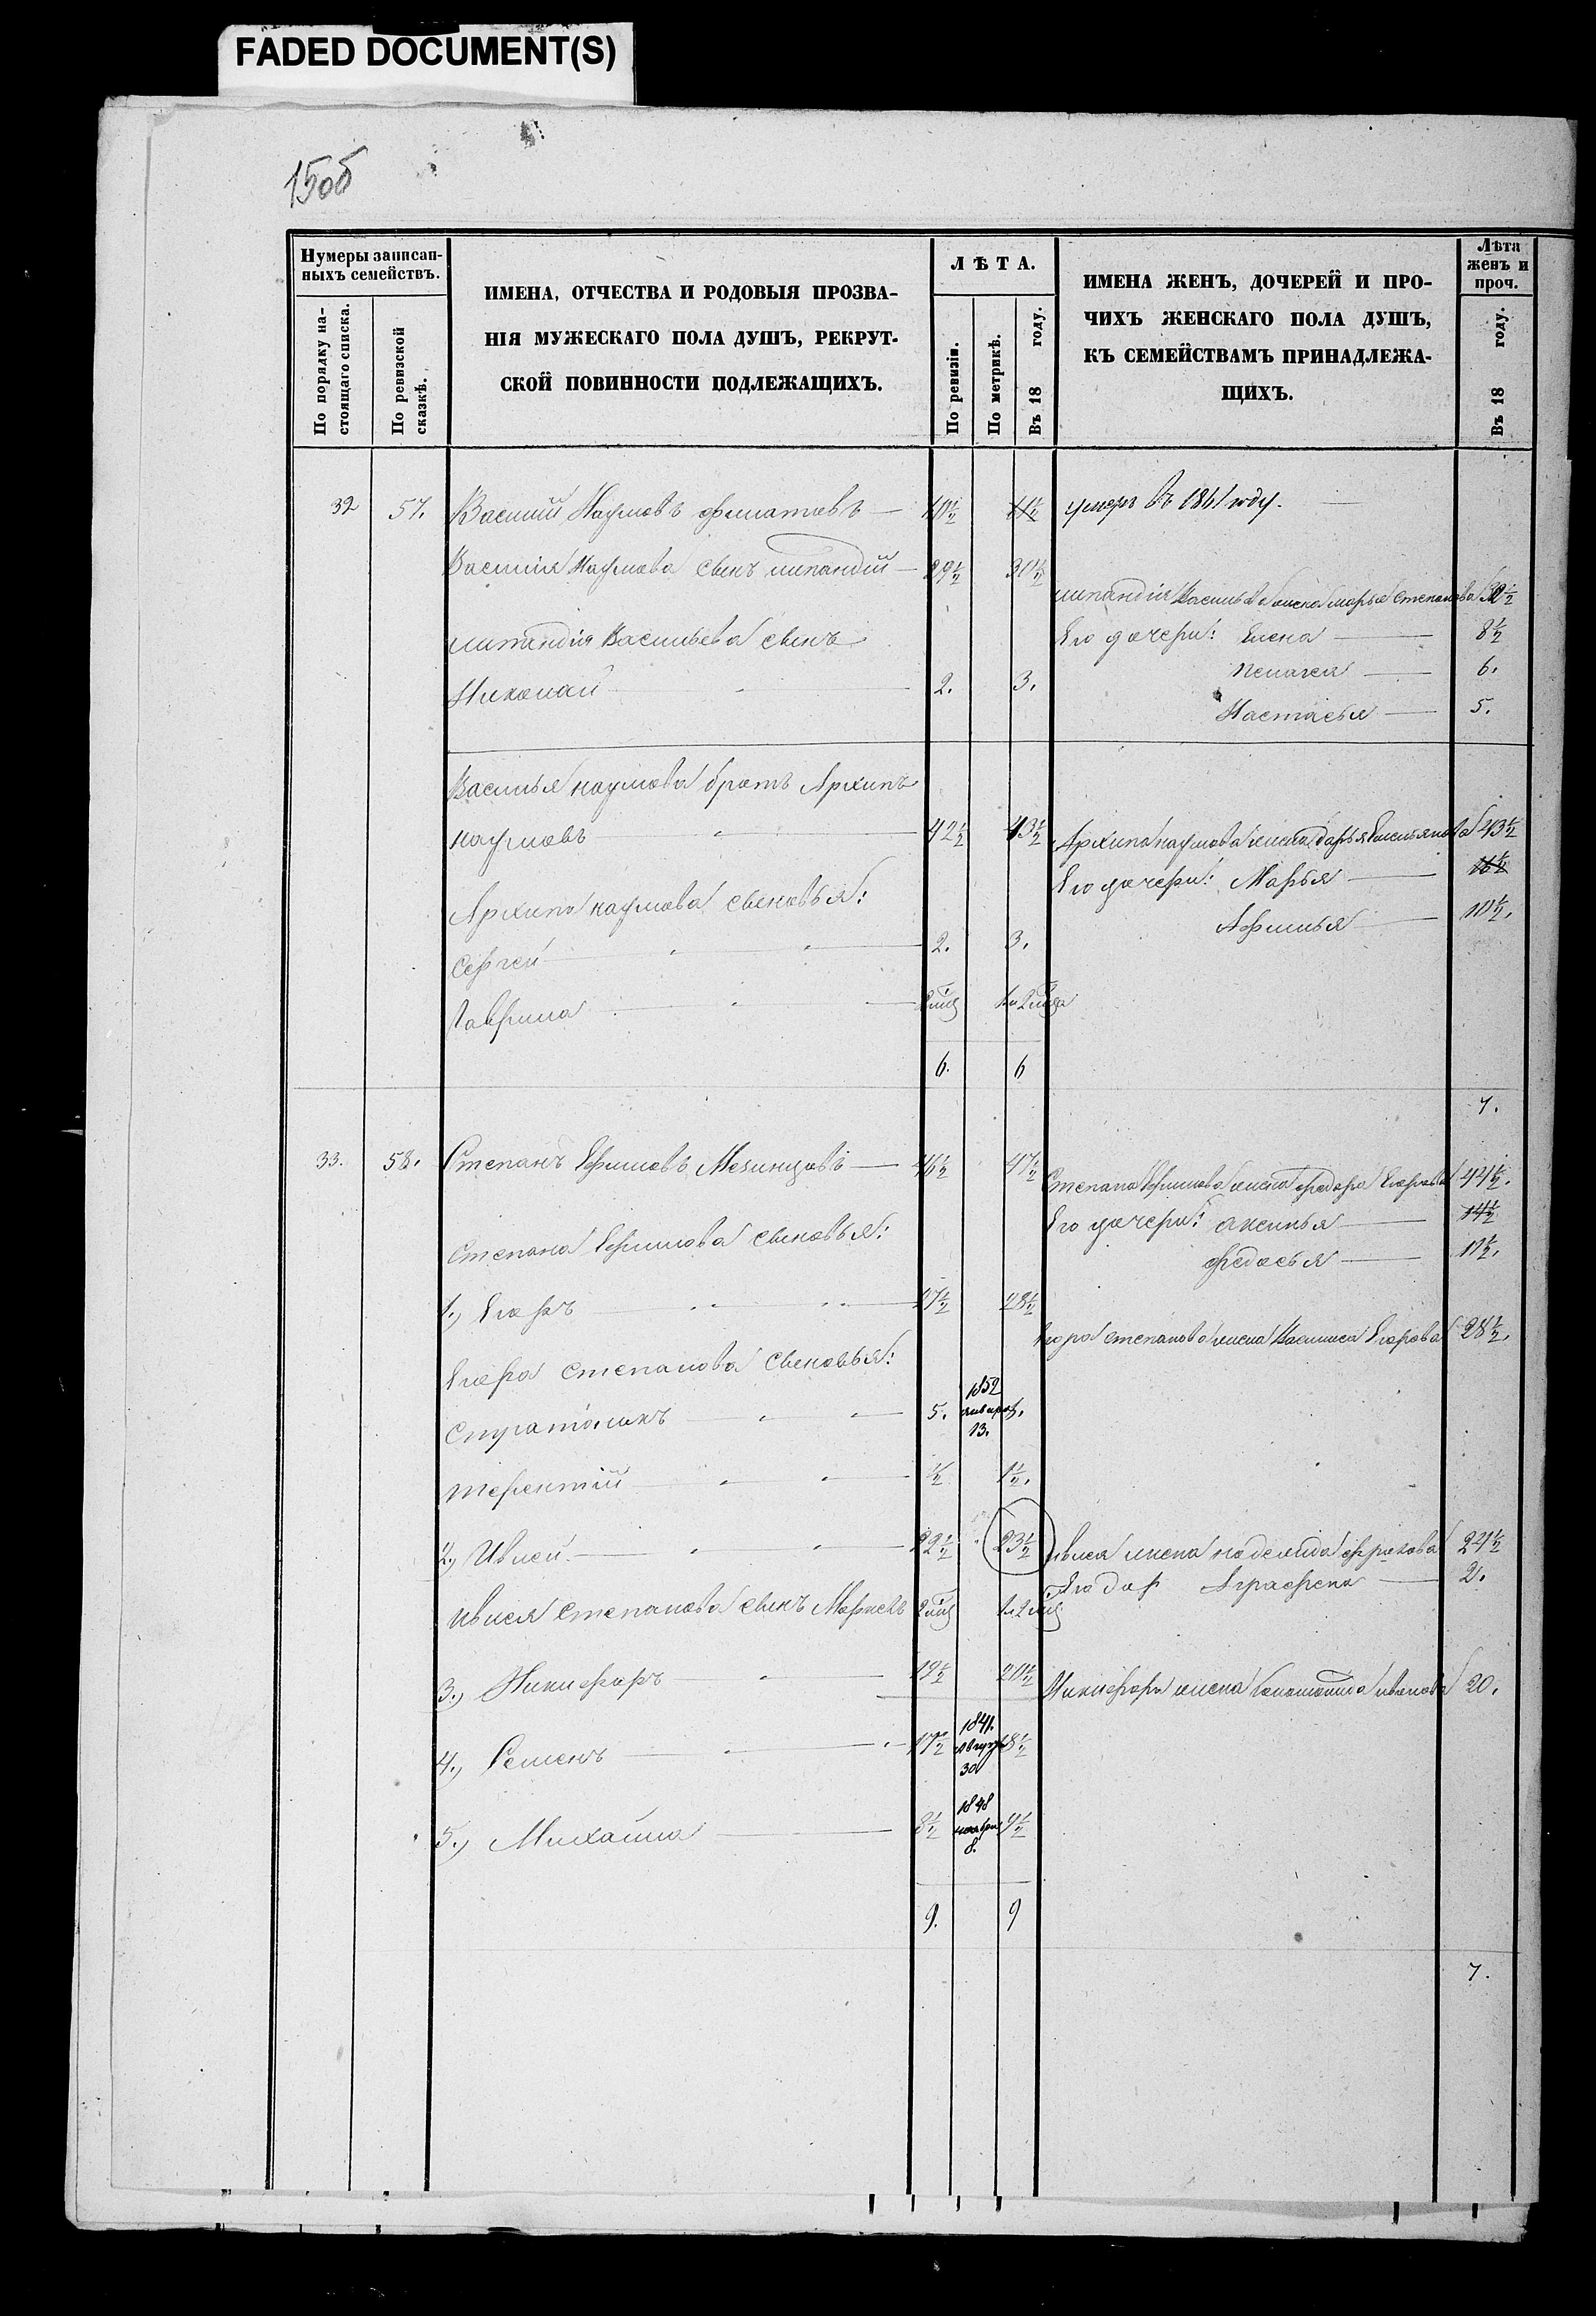 FADED DOCUMENT(S)
15об
Нумеры записан-
ныхъ семействъ.
По порядку на-
стоящаго списка.
По ревизской
сказкѣ.
ИМЕНА, ОТЧЕСТВА И РОДОВЫЯ ПРОЗВА-
НІЯ МУЖЕСКАГО ПОЛА ДУШЪ, РЕКРУТ-
СКОЙ ПОВИННОСТИ ПОДЛЕЖАЩИХЪ.
ЛѢТА.
По ревизіи.
По метрикѣ.
Въ 18 году.
ИМЕНА ЖЕНЪ, ДОЧЕРЕЙ И ПРО-
ЧИХЪ ЖЕНСКАГО ПОЛА ДУШЪ,
КЪ СЕМЕЙСТВАМЪ ПРИНАДЛЕЖА-
ЩИХЪ.
Лѣта
женъ и
проч.
Въ 18 году.
32 57. Василій Наумовъ Филатовъ умеръ въ 1861 году.
Василія Наумова сынъ Липандій 29½ 30½
Липандія Васильева жена Марья Степанова
Липандія Васильева сынъ Его дочери: Елена 8½
Николай 2. 3. Пелагея 6.
Настасья 5.
Василья Наумова братъ Архипъ
Наумовъ 42½ 43½ Архипа Наумова жена Дарья Емельянова 43½
Его дочери: Марья 16½
Архипа Наумова сыновья: Афимья 10½.
Сергей 2. 3.
Гаврила
6. 6
7.
33. 58. Степанъ Ефимовъ Мезинцовъ 46½ 47½
Степана Ефимова жена Федора Егорова 44½.
Его дочери: Аксинья 14½
Степана Ефимова сыновья: Федосья 11½.
1., Егоръ 27½ 28½
Егора Степанова жена Василиса Егорова 28½.
Егора Степанова сыновья:
5. 1852 января 13.
Терентій ½ 1½.
2., Ивлей 22½ 23½ Ивлея жена Надежда Фролова 24½
Его доч Аграфена 2.
Ивлея Степанова сынъ
3., Никифоръ 19½ 20½ Никифора жена Иванова 20.
4., Семенъ 17½ 1841. Августа 30 18½
5., Михайла 8½ 1848 ноября 8. 9½
9. 9
7.